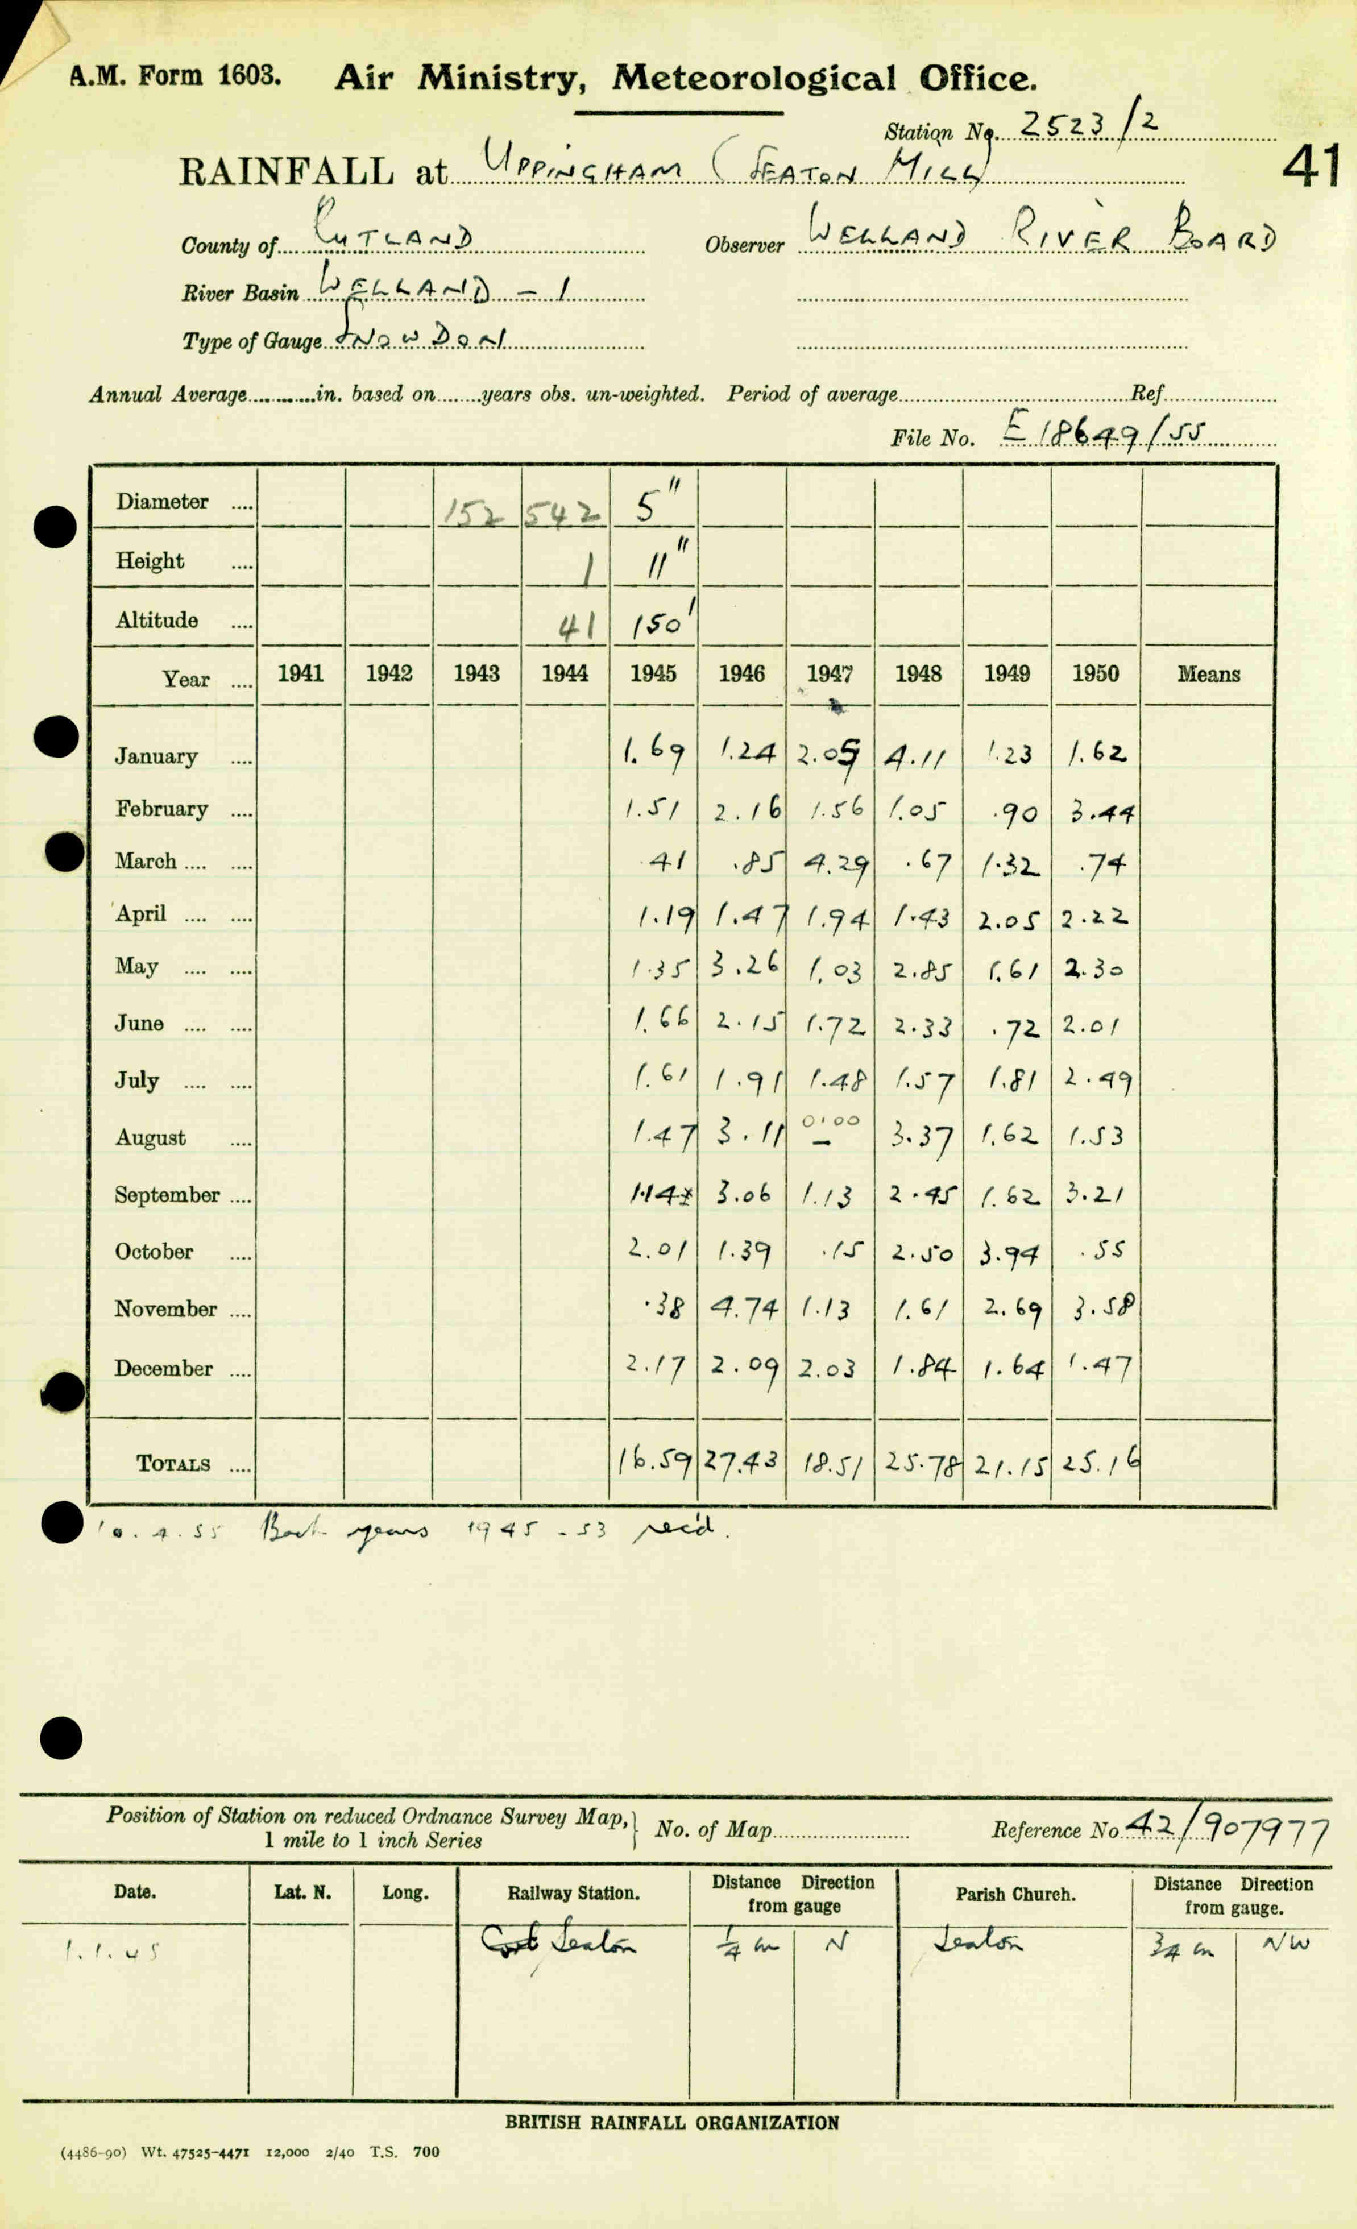 A.M. Form 1603. Air Ministry, Meteorological Office.
Station No. 2523/2
RAINFALL at UPPINGHAM (SEATON MILL) 41
County of RUTLAND Observer WELLAND RIVER BOARD
River Basin WELLAND - 1
Type of Gauge SNOWDON
Annual Average............in. based on........years obs. un-weighted. Period of average........................Ref.............
File No. E 18649/55
Diameter .... 152 542 5"
Height .... 1 11"
Altitude .... 41 150'
Year .... 1941 1942 1943 1944 1945 1946 1947 1948 1949 1950 Means
January .... 1.69 1.24 2.05 4.11 1.23 1.62
February .... 1.51 2.16 1.56 1.05 .90 3.44
March .... .... .41 .85 4.29 .67 1.32 .74
April .... .... 1.19 1.47 1.94 1.43 2.05 2.22
May .... .... 1.35 3.26 1.03 2.85 1.61 2.30
June .... .... 1.66 2.15 1.72 2.33 .72 2.01
July .... .... 1.61 1.91 1.48 1.57 1.81 2.49
August .... 1.47 3.11 0.00 – 3.37 1.62 1.53
September .... 1.14 3.06 1.13 2.45 1.62 3.21
October .... 2.01 1.39 .15 2.50 3.94 .55
November .... .38 4.74 1.13 1.61 2.69 3.58
December .... 2.17 2.09 2.03 1.84 1.64 1.47
TOTALS .... 16.59 27.43 18.51 25.78 21.15 25.16
10.4.55 Back years 1945-53 rec'd.
Position of Station on reduced Ordnance Survey Map, 1 mile to 1 inch Series } No. of Map............ Reference No 42/907977
Date. Lat. N. Long. Railway Station. Distance Direction from gauge Parish Church. Distance Direction from gauge.
1.1.45 Seaton ¼ m N Seaton ¾ m NW
BRITISH RAINFALL ORGANIZATION
(4486-90) Wt. 47525-4471 12,000 2/40 T.S. 700